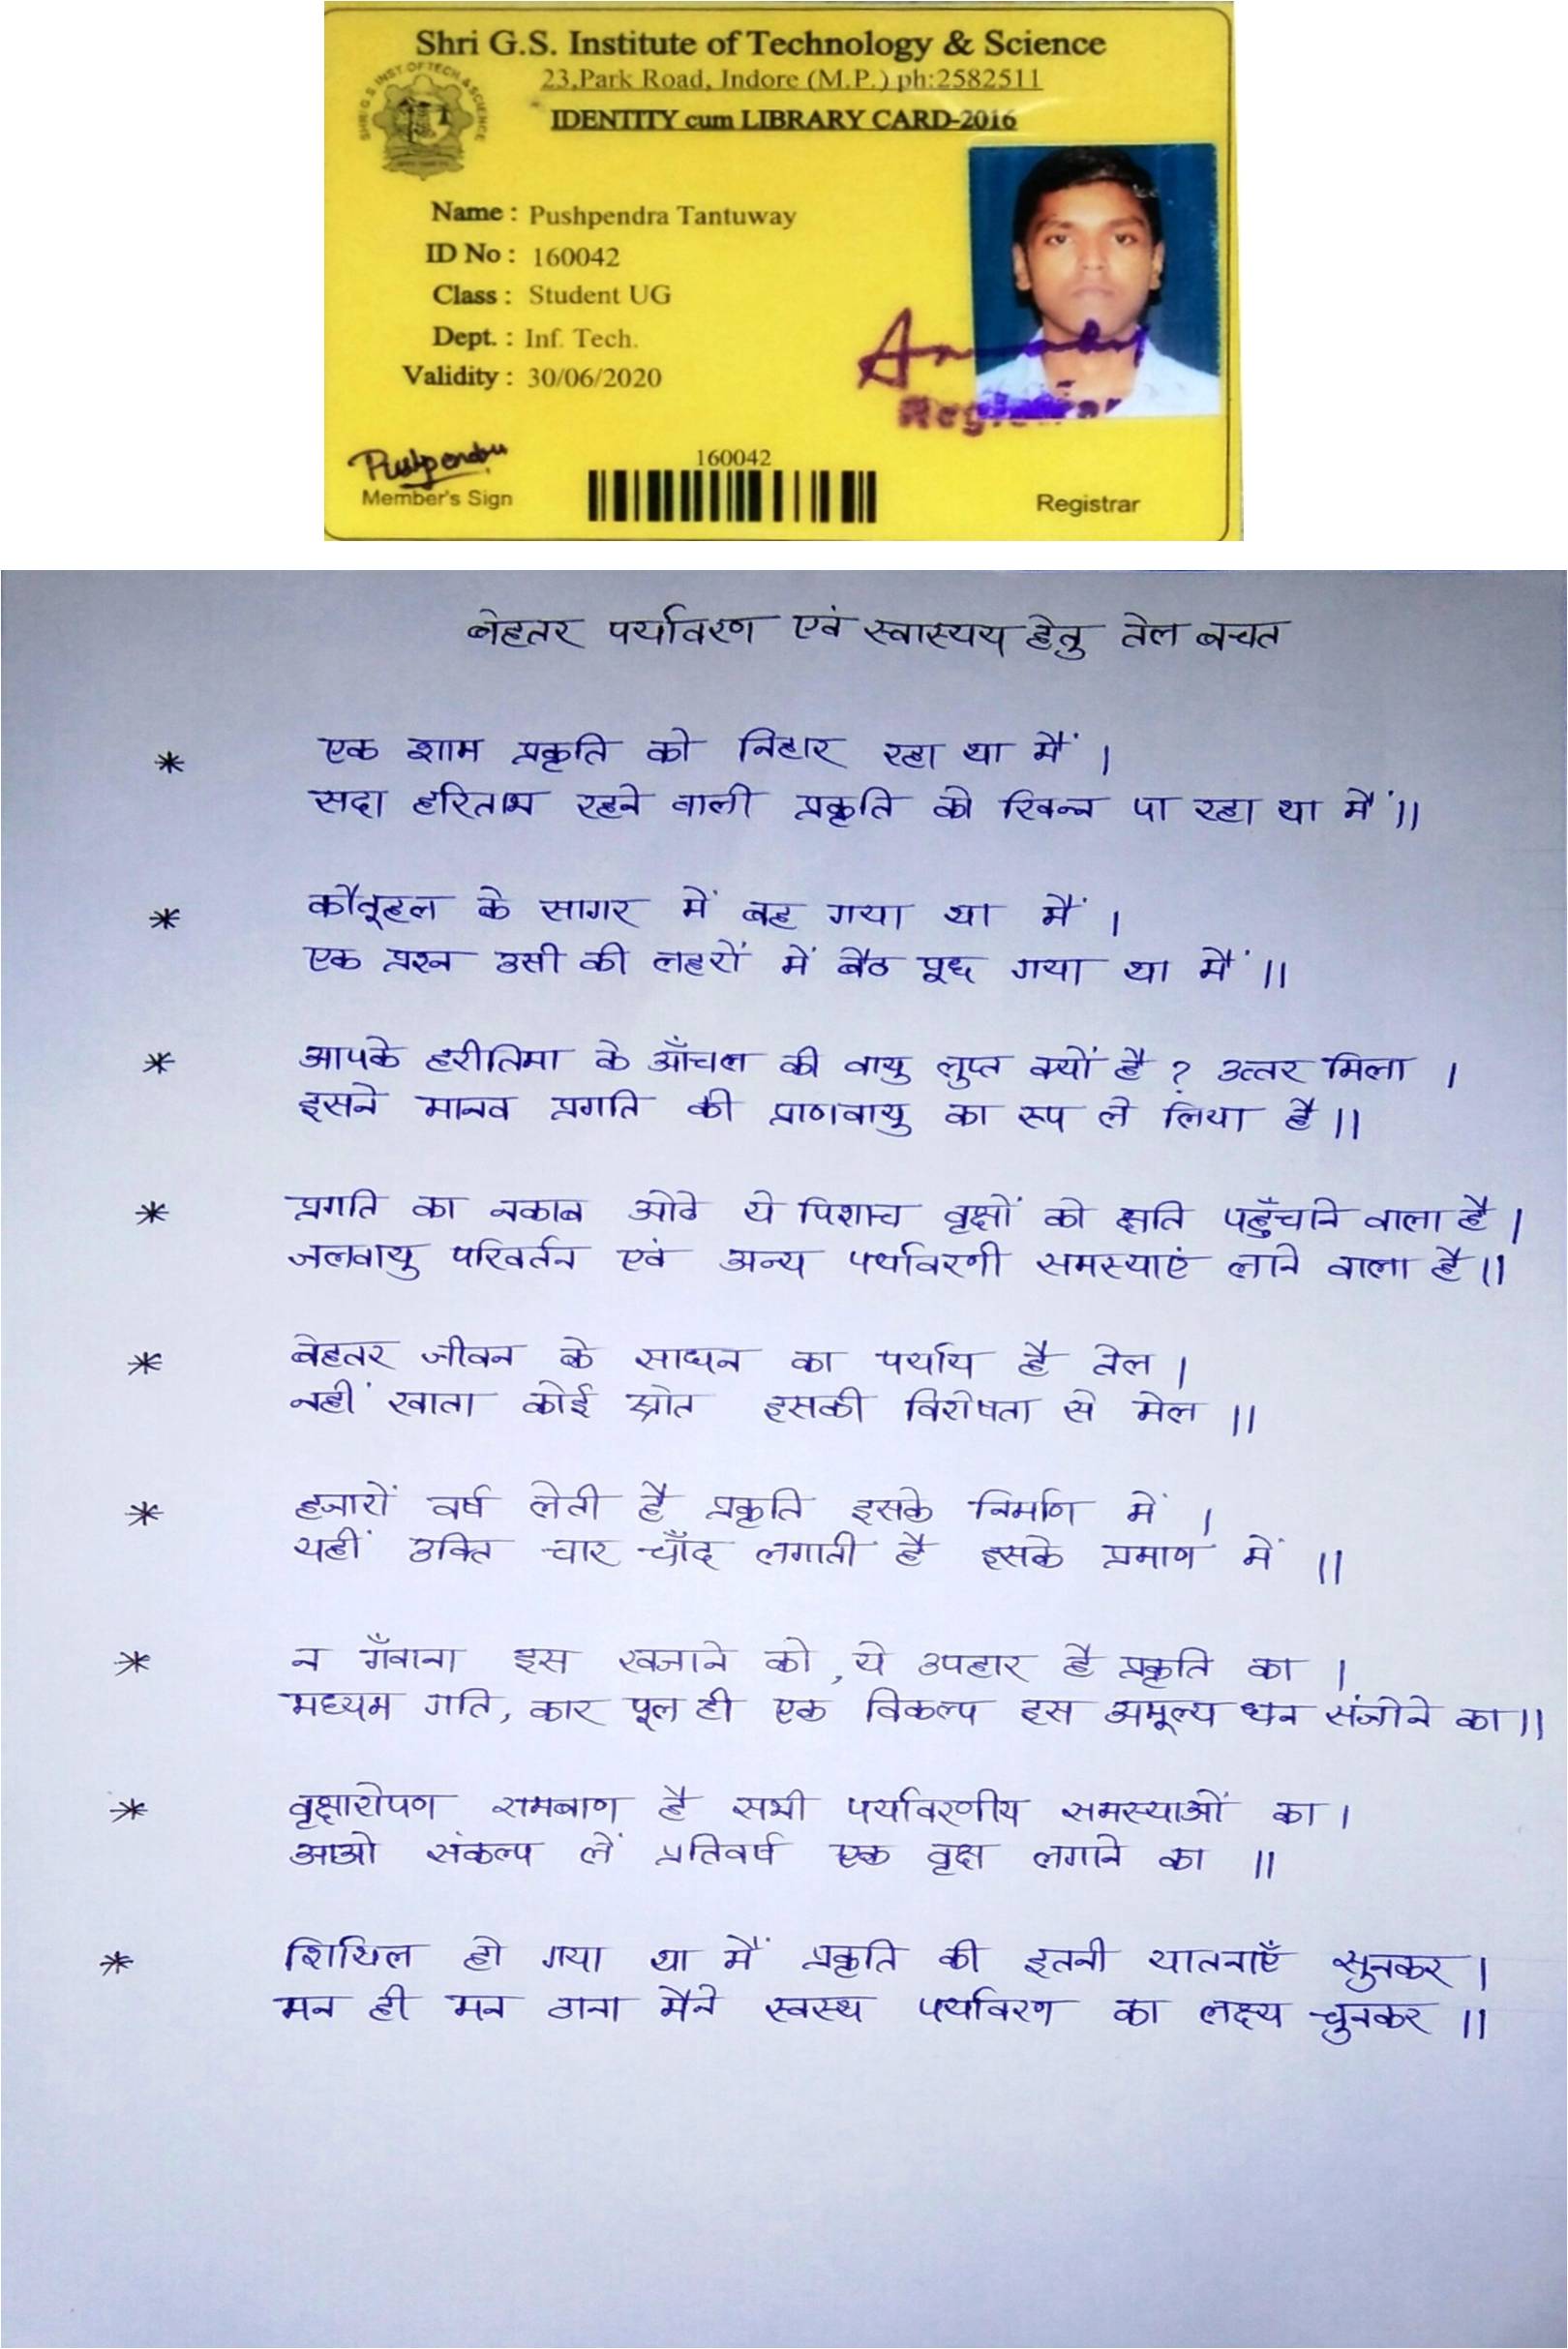 Shri G.S. Institute of Technology & Science
23,Park Road, Indore (M.P.) ph:2582511
IDENTITY cum LIBRARY CARD-2016
SHRI G.S INST OF TECH & SCIENCE
Name : Pushpendra Tantuway
ID No : 160042
Class : Student UG
Dept. : Inf. Tech.
Validity : 30/06/2020
Registrar
Pushpendra
Member's Sign
160042
Registrar
बेहतर पर्यावरण एवं स्वास्थ्य हेतु तेल बचत
* एक शाम प्रकृति को निहार रहा था मैं ।
सदा हरिताभ रहने वाली प्रकृति को खिन्न पा रहा था मैं ॥
* कौतूहल के सागर में बह गया था मैं ।
एक प्रश्न उसी की लहरों में बैठ पूछ गया था मैं ॥
* आपके हरीतिमा के आँचल की वायु लुप्त क्यों है ? उत्तर मिला ।
इसने मानव प्रगति की प्राणवायु का रूप ले लिया है ॥
* प्रगति का नकाब ओढे ये पिशाच वृक्षों को क्षति पहुँचाने वाला है ।
जलवायु परिवर्तन एवं अन्य पर्यावरणी समस्याएं लाने वाला है ॥
* बेहतर जीवन के साधन का पर्याय है तेल ।
नहीं खाता कोई स्रोत इसकी विशेषता से मेल ॥
* हजारों वर्ष लेती है प्रकृति इसके निर्माण में ।
यहीं उक्ति चार चाँद लगाती है इसके प्रमाण में ॥
* न गँवाना इस खजाने को, ये उपहार है प्रकृति का ।
मध्यम गति, कार पूल ही एक विकल्प इस अमूल्य धन संजोने का ॥
* वृक्षारोपण रामबाण है सभी पर्यावरणीय समस्याओं का ।
आओ संकल्प लें प्रतिवर्ष एक वृक्ष लगाने का ॥
* शिथिल हो गया था मैं प्रकृति की इतनी यातनाएँ सुनकर ।
मन ही मन ठाना मैने स्वस्थ पर्यावरण का लक्ष्य चुनकर ॥